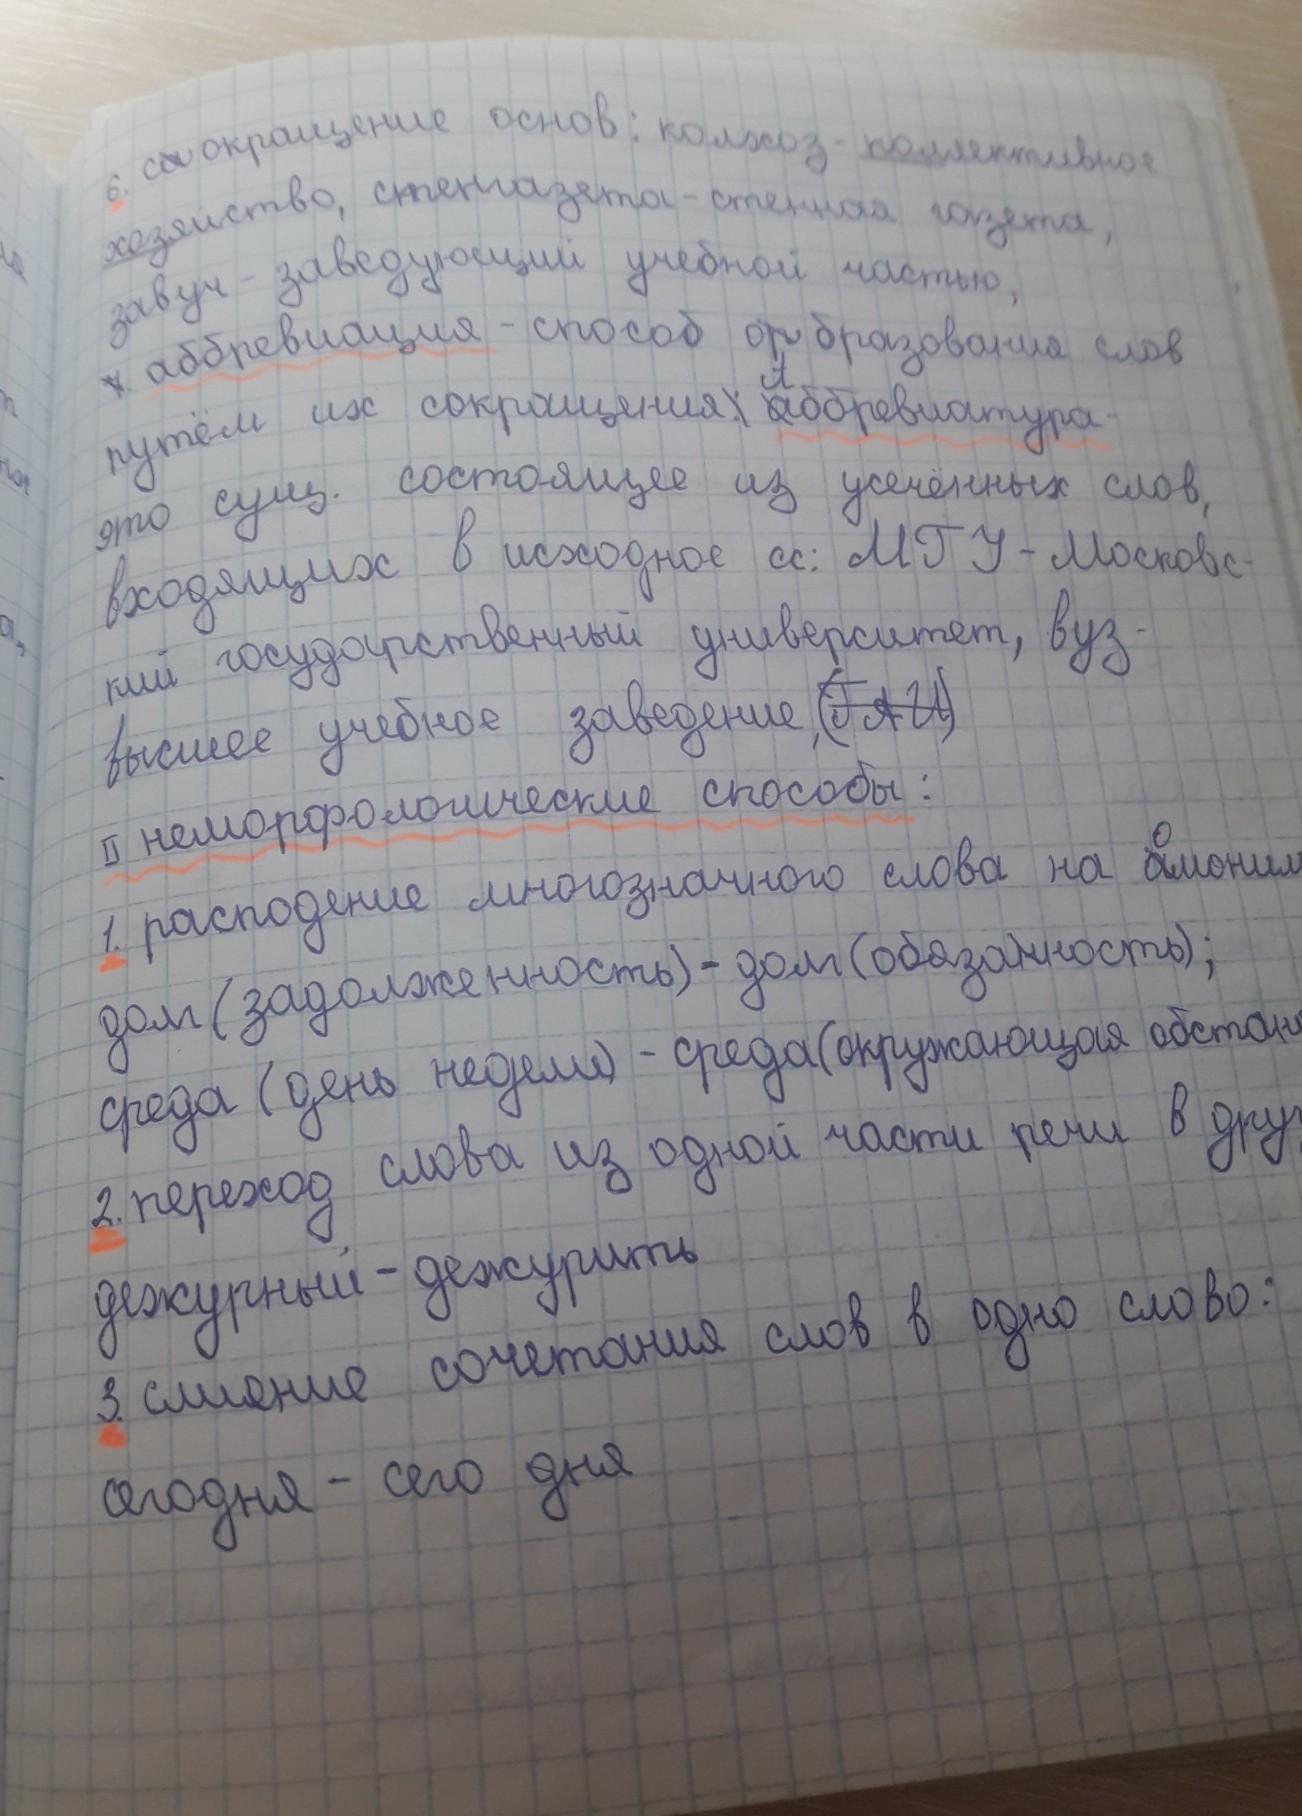 6. сокращение основ: колхоз - коллективное
хозяйство, стенгазета - стенная газета,
завуч - заведующий учебной частью,
аббревиация - способ образования слов
путём их сокращения. Аббревиатура -
это сущ. состоящее из усечённых слов,
входящих в исходное сс: МГУ - Московс-
кий государственный университет, вуз -
высшее учебное заведение, (ГАИ)
II неморфологические способы:
1. расподение многозначного слова на омоним
долг (задолженность) - долг (обязанность);
среда (день недели) - среда (окружающая обстан
2. переход слова из одной части речи в друг
дежурный - дежурить
3. слияние сочетания слов в одно слово:
сегодня - сего дня